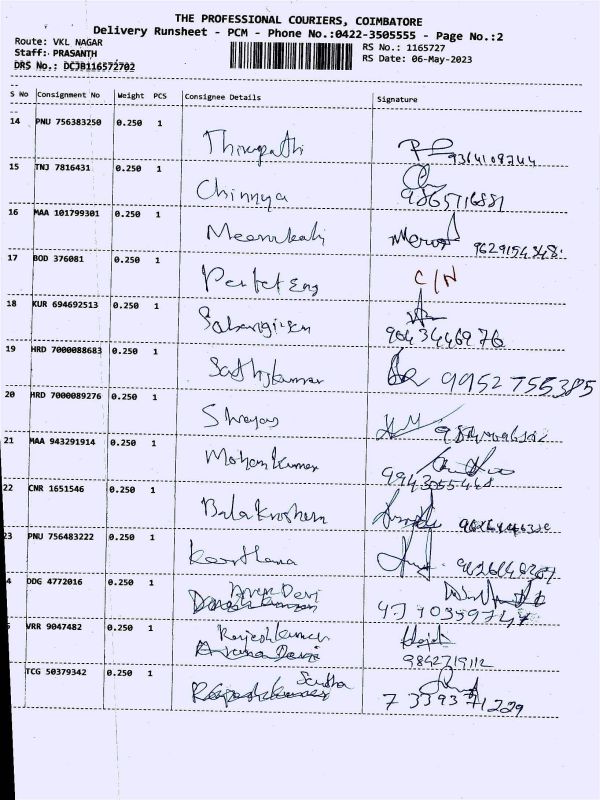 THE PROFESSIONAL COURIERS, COIMBATORE
Delivery Runsheet - PCM - Phone No.:0422-3505555 - Page No.:2
Route: VKL NAGAR RS No.: 1165727
Staff: PRASANTH RS Date: 06-May-2023
DRS No.: DCJB116572702
S No Consignment No Weight PCS Consignee Details Signature
14 PNU 756383250 0.250 1
Thirupathi 9364109744
15 TNJ 7816431 0.250 1
Chinnya 9865716881
16 MAA 101799301 0.250 1
Meenakshi 9629154348
17 BOD 376081 0.250 1
Perfect Eng C/N
18 KUR 694692513 0.250 1
9043446976
19 HRD 7000088683 0.250 1
Sathjkumar 99527 55385
20 HRD 7000089276 0.250 1
Shreyas
21 MAA 943291914 0.250 1
Mohan Kumar 9943055448
22 CNR 1651546 0.250 1
Bala Krishna
23 PNU 756483222 0.250 1
Keerthana
4 DDG 4772016 0.250 1
Devi
VRR 9047482 0.250 1
Rajesh Kumar
9842719112
TCG 50379342 0.250 1
7 3393 71229